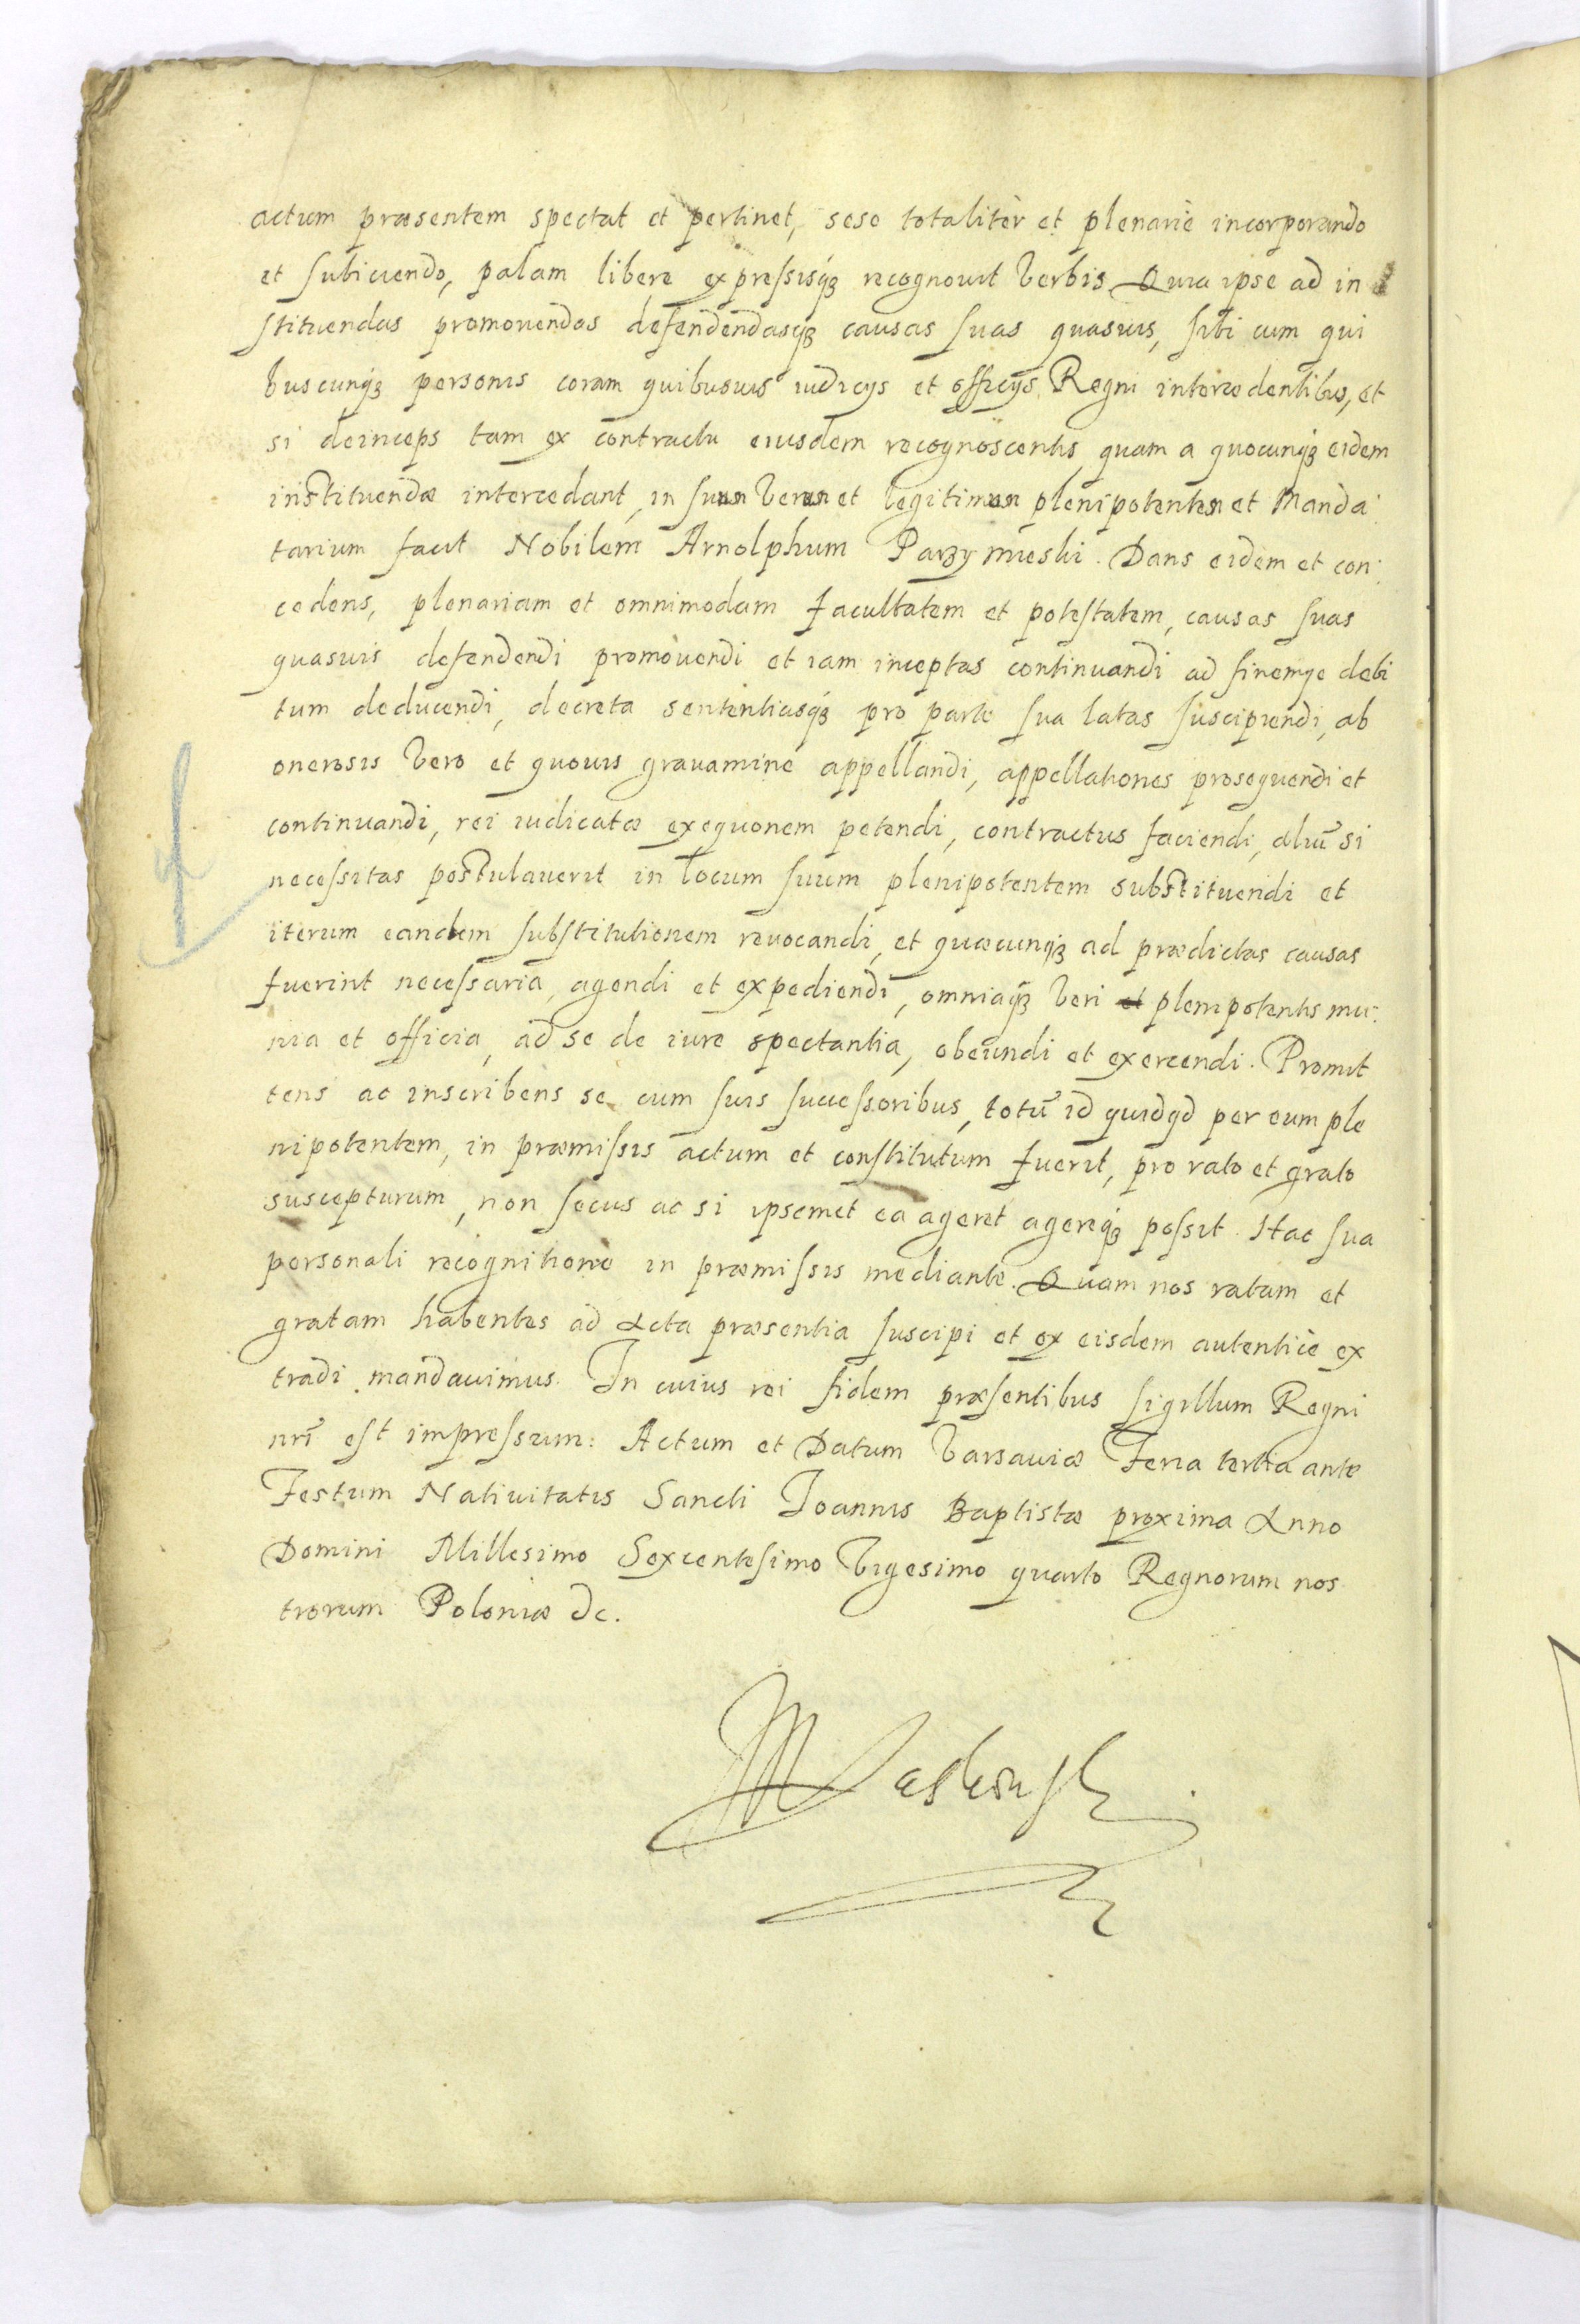 actum præsentem spectat et pertinet, sese totalitèr et plenariè incorporando
et subiiciendo, palam libere expressisq́ꝫ recognouit verbis. Quia ipse ad in
stituendas promouendas defendendasq́ꝫ causas suas quasuis, sibi cum qui
buscunq́ꝫ personis coram quibusuis iudicÿs et officÿs Regni intercedentibus, et
si deinceps tam ex contractu eiusdem recognoscentis quam a quocunq́ꝫ eidem
instituendæ intercedant, in suum verum et legitimum plenipotentem et Manda
tarium facit Nobilem Arnolphum Parzymieski. Dans eidem et con
cedens, plenariam et omnimodam facultatem et potestatem, causas suas
quasuis defendendi promouendi et iam inceptas continuandi ad finemqe debi
tum deducendi, decreta sententiasq́ꝫ pro parte sua latas suscipiendi, ab
onerosis vero et quouis grauamine appellandi, appellationes prosequendi et
continuandi, rei iudicatæ exequonem petendi, contractus faciendi, aliũ si
necessitas postulauerit in locum suum plenipotentem substituendi et
iterum eandem substitutionem reuocandi, et quæcunq́ꝫ ad prædictas causas
fuerint necessaria, agendi et expediendi, omniaq́ꝫ veri et plenipotentis mu
nia et officia, ad se de iure spectantia, obeundi et exercendi. Promit
tens ac inscribens se cum suis successoribus, totũ id quidqd per eum ple
nipotentem, in præmissis actum et constitutum fuerit, pro rato et grato
suscepturum, non secus ac si ipsemet ea ageret agereq́ꝫ possit. Hac sua
personali recognitione in præmissis mediante. Quam nos ratam et
gratam habentes ad Acta præsentia suscipi et ex eisdem autenticè ex
tradi mandauimus. In cuius rei fidem præsentibus sigillum Regni
nrĩ est impressum. Actum et Datum Varsauiæ Feria tertia ante
Festum Natiuitatis Sancti Joannis Baptistæ proxima Anno
Domini Millesimo Sexcentesimo Vigesimo quarto Regnorum nos
trorum Poloniæ &c.